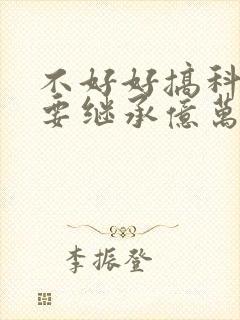 不好好搞科
要继承億萬
李振登